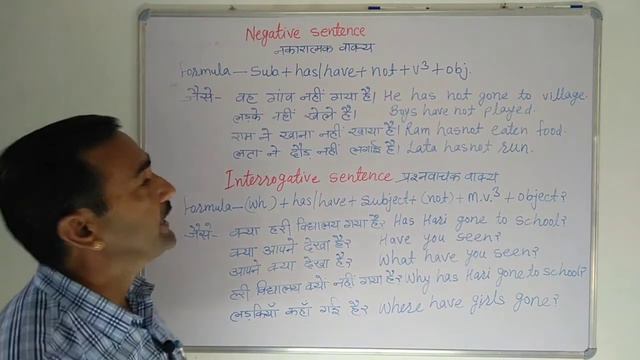 Negative sentence
नकारात्मक वाक्य
Formula — Sub + has/have + not + v³ + obj.
जैसे - वह गांव नहीं गया है। He has not gone to village.
लड़के नहीं खेले है। Boys have not played.
राम ने खाना नहीं खाया है। Ram has not eaten food.
लता ने दौड़ नहीं लगाई है। Lata has not run.
Interrogative sentence प्रश्नवाचक वाक्य
Formula — (Wh) + has/have + Subject + (not) + m.v.³ + object?
जैसे - क्या हरी विद्यालय गया है? Has Hari gone to school?
क्या आपने देखा है? Have you seen?
आपने क्या देखा है? What have you seen?
हरी विद्यालय क्यों नहीं गया है? Why has Hari gone to school?
लड़कियाँ कहाँ गई है? Where have girls gone?